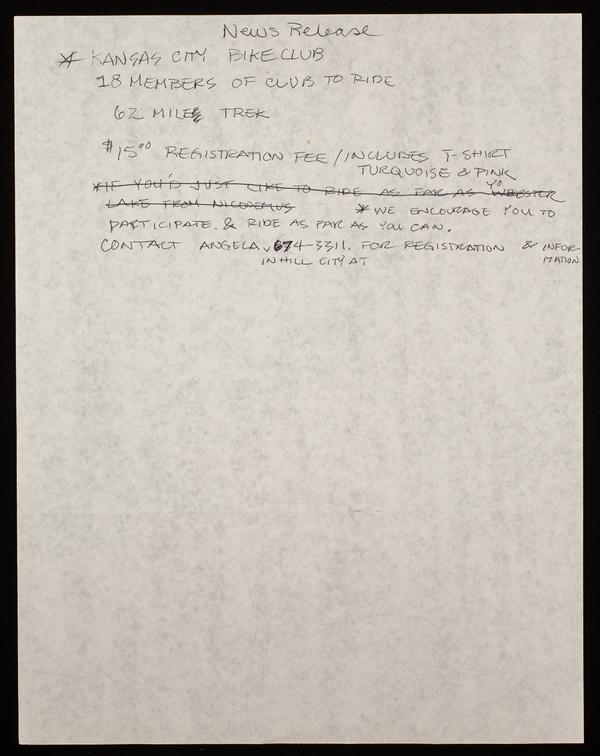 News Release
* KANSAS CITY BIKE CLUB
18 MEMBERS OF CLUB TO RIDE
62 MILE TREK
$15.00 REGISTRATION FEE / INCLUDES T-SHIRT
TURQUOISE & PINK
*IF YOU'D JUST LIKE TO RIDE AS FAR AS WEBSTER
LAKE FROM NICODEMUS * WE ENCOURAGE YOU TO
PARTICIPATE. & RIDE AS FAR AS YOU CAN.
CONTACT ANGELA 674-3311. FOR REGISTRATION & INFOR-
IN HILL CITY AT MATION